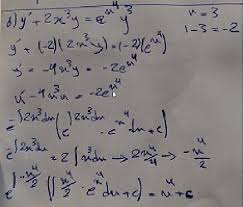 b) y' + 2x³y = e^{x⁴} y³
n = 3
1 - 3 = -2
y' + (-2)(2x³y) = (-2)(e^{x⁴})
y' = -4x³y = -2e^{x⁴}
u' - 4x³u = -2e^{x⁴}
e^{-∫2x³dx} (e^{∫2x³dx} · e^{-x⁴} dx + c)
e^{-∫2x³dx} = 2∫x³dx → 2x⁴/4 → -x⁴/2
e^{∫-x⁴/2} (∫x⁴/2 · e^{-x⁴} dx + c) = x⁴ + c